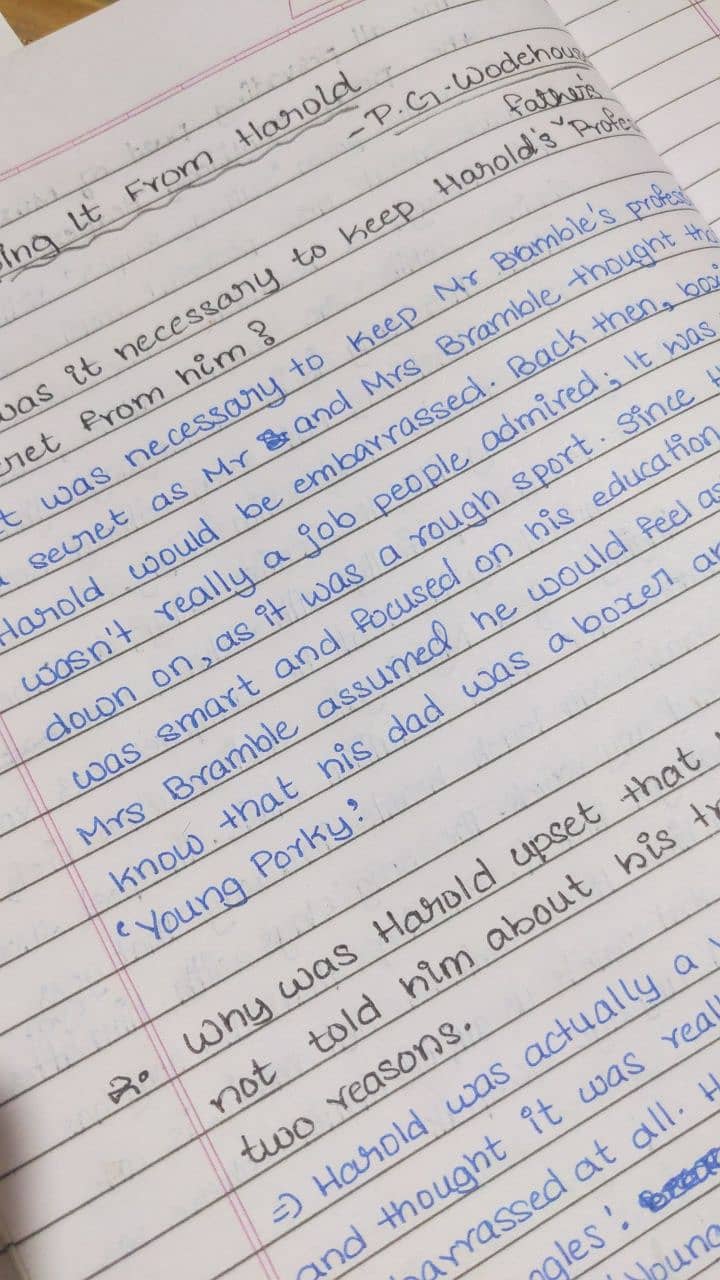 ing It From Harold
-P.G.Wodehous
Father's
was it necessary to keep Harold's Profe
cret from him?
t was necessary to keep Mr Bramble's profess
secret as Mr and Mrs Bramble thought tha
Harold would be embarrassed. Back then, boxi
wasn't really a job people admired; It was
down on, as it was a rough sport. Since H
was smart and focused on his education
Mrs Bramble assumed he would feel as
know that his dad was a boxer an
'Young Porky'.
2. Why was Harold upset that
not told him about his tr
two reasons.
=) Harold was actually a
and thought it was reall
barrassed at all. H
ngles'.
Young